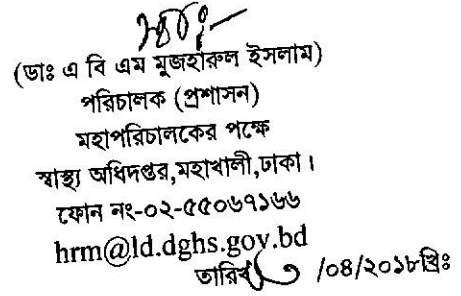 (ডাঃ এ বি এম মুজহারুল ইসলাম)
পরিচালক (প্রশাসন)
মহাপরিচালকের পক্ষে
স্বাস্থ্য অধিদপ্তর,মহাখালী,ঢাকা।
ফোন নং-০২-৫৫০৬৭১৬৬
hrm@ld.dghs.gov.bd
তারিখ /০৪/২০১৮খ্রিঃ